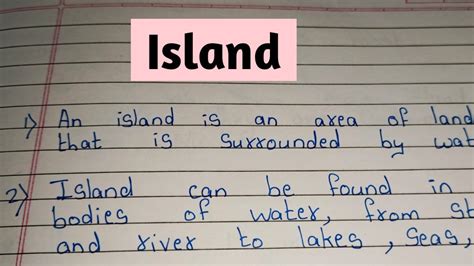 Island
1) An island is an area of land
that is surrounded by wat
2) Island can be found in
bodies of water, from st
and river to lakes, seas,